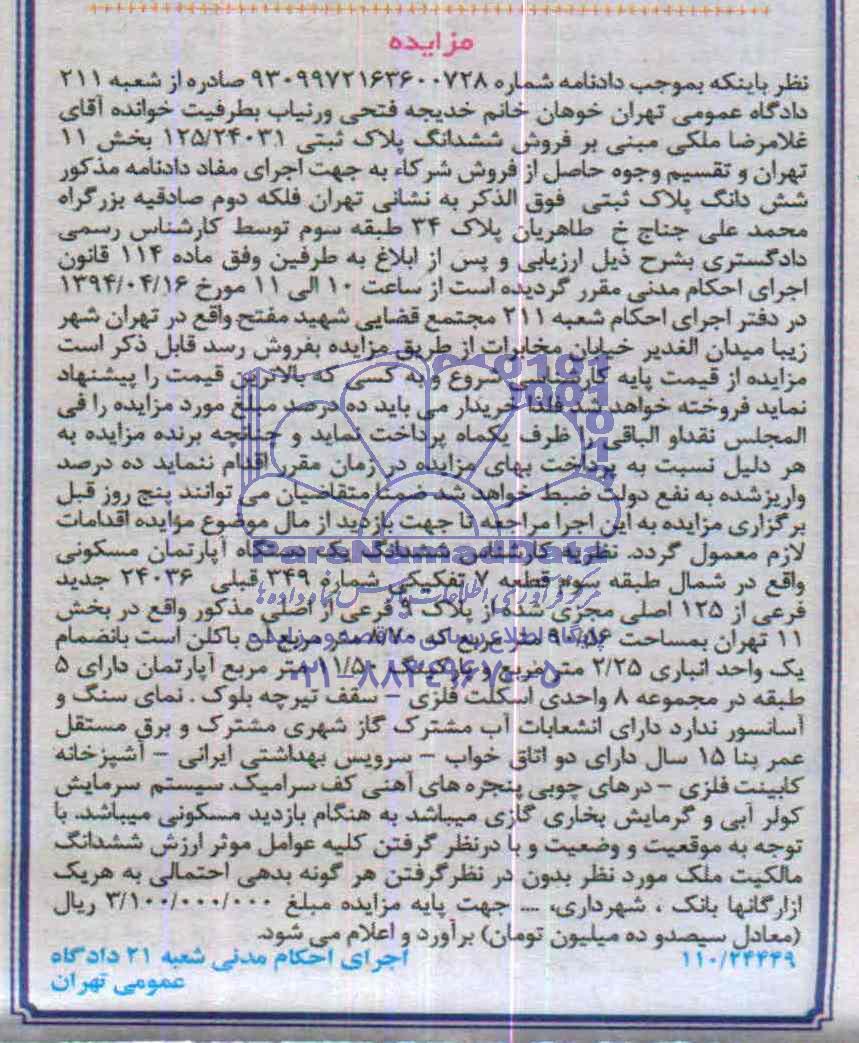 مزایده
نظر باینکه بموجب دادنامه شماره ۹۳۰۹۹۷۲۱۶۳۶۰۰۷۲۸ صادره از شعبه ۲۱۱
دادگاه عمومی تهران خوهان خانم خدیجه فتحی ورنیاب بطرفیت خوانده آقای
غلامرضا ملکی مبنی بر فروش ششدانگ پلاک ثبتی ۱۲۵/۲۴۰۳۱ بخش ۱۱
تهران و تقسیم وجوه حاصل از فروش شرکاء به جهت اجرای مفاد دادنامه مذکور
شش دانگ پلاک ثبتی فوق الذکر به نشانی تهران فلکه دوم صادقیه بزرگراه
محمد علی جناح خ طاهریان پلاک ۳۴ طبقه سوم توسط کارشناس رسمی
دادگستری بشرح ذیل ارزیابی و پس از ابلاغ به طرفین وفق ماده ۱۱۴ قانون
اجرای احکام مدنی مقرر گردیده است از ساعت ۱۰ الی ۱۱ مورخ ۱۳۹۴/۰۴/۱۶
در دفتر اجرای احکام شعبه ۲۱۱ مجتمع قضایی شهید مفتح واقع در تهران شهر
زیبا میدان الغدیر خیابان مخابرات از طریق مزایده بفروش رسد قابل ذکر است
مزایده از قیمت پایه کارشناسی شروع و به کسی که بالاترین قیمت را پیشنهاد
نماید فروخته خواهد شد فلذا خریدار می باید ده درصد مبلغ مورد مزایده را فی
المجلس نقداو الباقی را ظرف یکماه پرداخت نماید و چنانچه برنده مزایده به
هر دلیل نسبت به پرداخت بهای مزایده در زمان مقرر اقدام ننماید ده درصد
واریزشده به نفع دولت ضبط خواهد شد ضمنا متقاضیان می توانند پنج روز قبل
برگزاری مزایده به این اجرا مراجعه تا جهت بازدید از مال موضوع مزایده اقدامات
لازم معمول گردد. نظریه کارشناس ششدانگ یک دستگاه آپارتمان مسکونی
واقع در شمال طبقه سوم قطعه ۷ تفکیکی شماره ۳۴۹ قبلی ۲۴۰۳۶ جدید
فرعی از ۱۲۵ اصلی مجزی شده از پلاک ۹ فرعی از اصلی مذکور واقع در بخش
۱۱ تهران بمساحت متر مربع که متر مربع آن بالکن است بانضمام
یک واحد انباری ۲/۲۵ متر مربع و پارکینگ ۱۱/۵۰ متر مربع آپارتمان دارای ۵
طبقه در مجموعه ۸ واحدی اسکلت فلزی – سقف تیرچه بلوک . نمای سنگ و
آسانسور ندارد دارای انشعابات آب مشترک گاز شهری مشترک و برق مستقل
عمر بنا ۱۵ سال دارای دو اتاق خواب – سرویس بهداشتی ایرانی – آشپزخانه
کابینت فلزی – درهای چوبی پنجره های آهنی کف سرامیک. سیستم سرمایش
کولر آبی و گرمایش بخاری گازی میباشد به هنگام بازدید مسکونی میباشد. با
توجه به موقعیت و وضعیت و با درنظر گرفتن کلیه عوامل موثر ارزش ششدانگ
مالکیت ملک مورد نظر بدون در نظرگرفتن هر گونه بدهی احتمالی به هریک
ازارگانها بانک ، شهرداری، .... جهت پایه مزایده مبلغ ۳/۱۰۰/۰۰۰/۰۰۰ ریال
(معادل سیصدو ده میلیون تومان) برآورد و اعلام می شود.
۱۱۰/۲۴۴۴۹ اجرای احکام مدنی شعبه ۲۱ دادگاه
عمومی تهران
ParsNamadData
۰۲۱-۸۸۳۴۹۶۷۰-۵